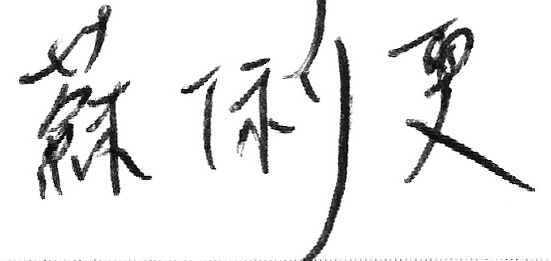 蘇俐更